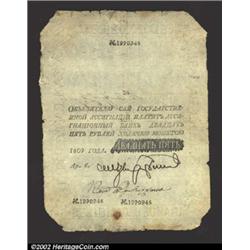 №1990948
ЗА
ОБЪЯВИТЕЛЮ СЕЙ ГОСУДАРСТВЕ-
ННОЙ АССИГНАЦIИ ПЛАТИТЪ АССИ-
ГНАЦIОННЫЙ БАНКЪ ДВАДЦАТЬ
ПЯТЬ РУБЛЕЙ ХОДЯЧЕЮ МОНЕТОЮ
1809 ГОДА.
ДВАДЦАТЬ ПЯТЬ
№1990948 №1990948
©2002 www.HeritageCoin.com